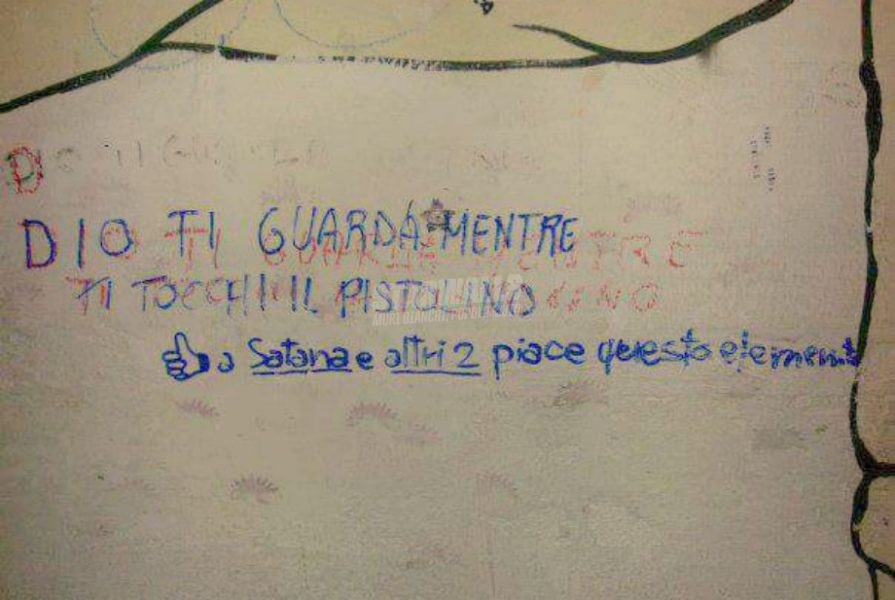 DIO TI GUARDA MENTRE
TI TOCCHI IL PISTOLINO
a Satana e altri 2 piace questo elemento